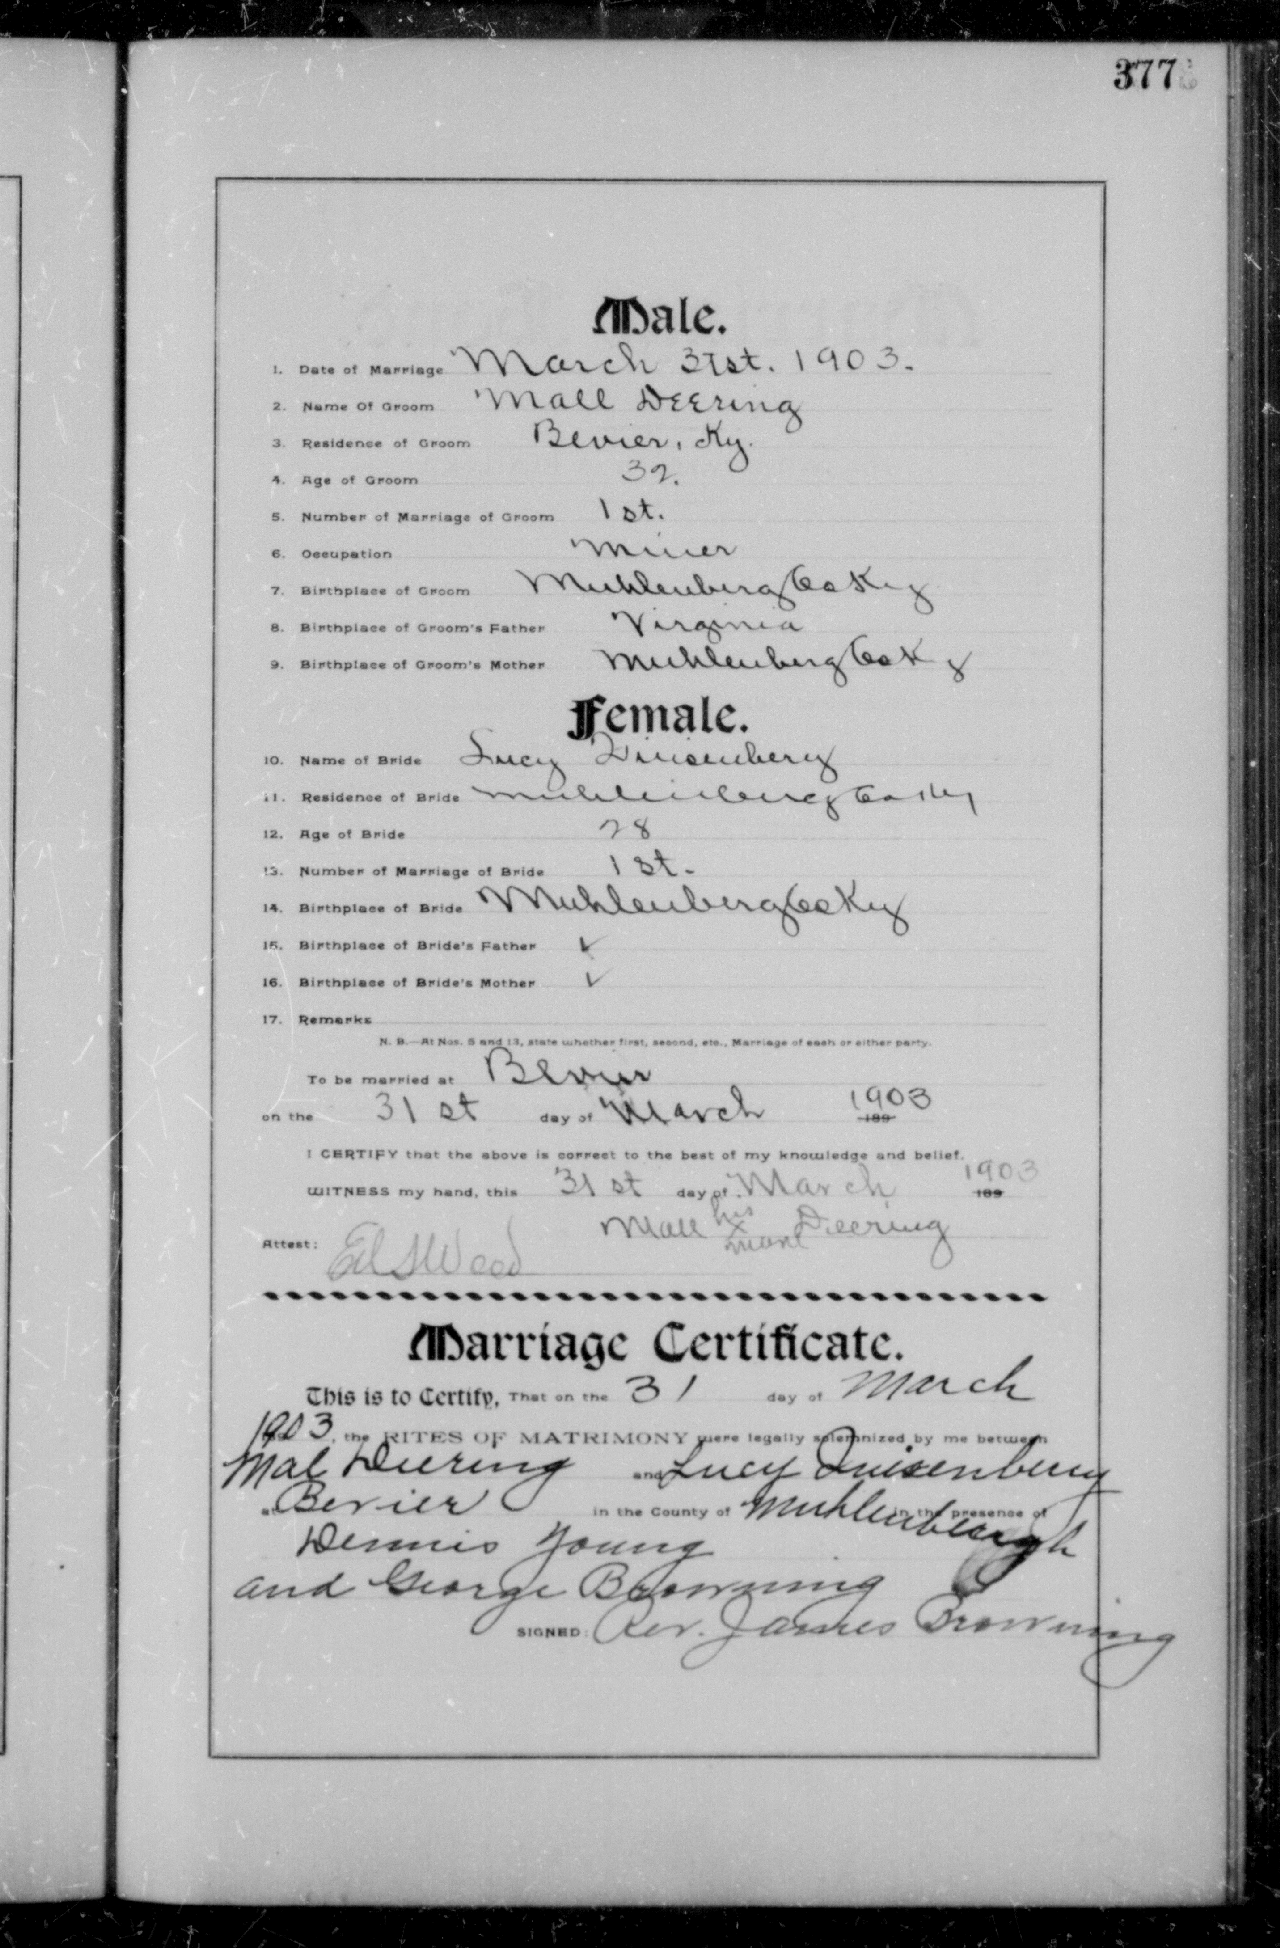 377
Male.
1. Date of Marriage March 31st. 1903.
2. Name Of Groom Mall Deering
3. Residence of Groom Bevier, Ky.
4. Age of Groom 32.
5. Number of Marriage of Groom 1st.
6. Occupation Miner
7. Birthplace of Groom Muhlenberg Co Ky
8. Birthplace of Groom's Father Virginia
9. Birthplace of Groom's Mother Muhlenberg Co Ky
Female.
10. Name of Bride Lucy Quisenbery
11. Residence of Bride Muhlenberg Co Ky
12. Age of Bride 28
13. Number of Marriage of Bride 1st.
14. Birthplace of Bride Muhlenberg Co Ky
15. Birthplace of Bride's Father ✓
16. Birthplace of Bride's Mother ✓
17. Remarks
N. B.—At Nos. 5 and 13, state whether first, second, etc., Marriage of each or either party.
To be married at Bevier
on the 31st day of March 1903 189
I CERTIFY that the above is correct to the best of my knowledge and belief.
WITNESS my hand, this 31st day of March 1903 189
Mall his x mark Deering
Attest: Ed S Wood
Marriage Certificate.
This is to Certify, That on the 31 day of March
1903, the RITES OF MATRIMONY were legally solemnized by me between
Mal Deering and Lucy Quisenberry
at Bevier in the County of Muhlenbergh in the presence of
Dennis Young
and George Browning
SIGNED: Rev. James Browning